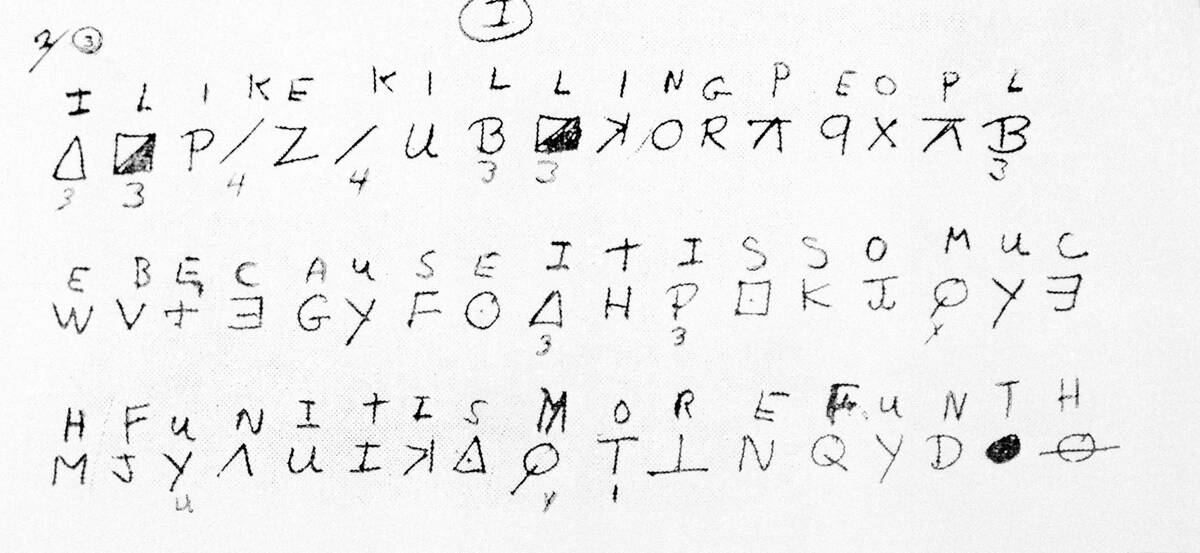 I
2/ 3
I L I K E K I L L I N G P E O P L
Δ ◪ P / Z / U B ◪ ꓘ O R ⊼ 9 X ⊼ B
3 3 4 4 3 3 3
E B E C A U S E I T I S S O M U C
W V + Ǝ G Y F ⊙ Δ H P ⊡ K J Q Y Ǝ
3 3 x
H F U N I T I S M O R E F U N T H
M J Y Λ U I ꓘ ◬ Q T ⊥ N Q Y D ● ⊖
u y 1